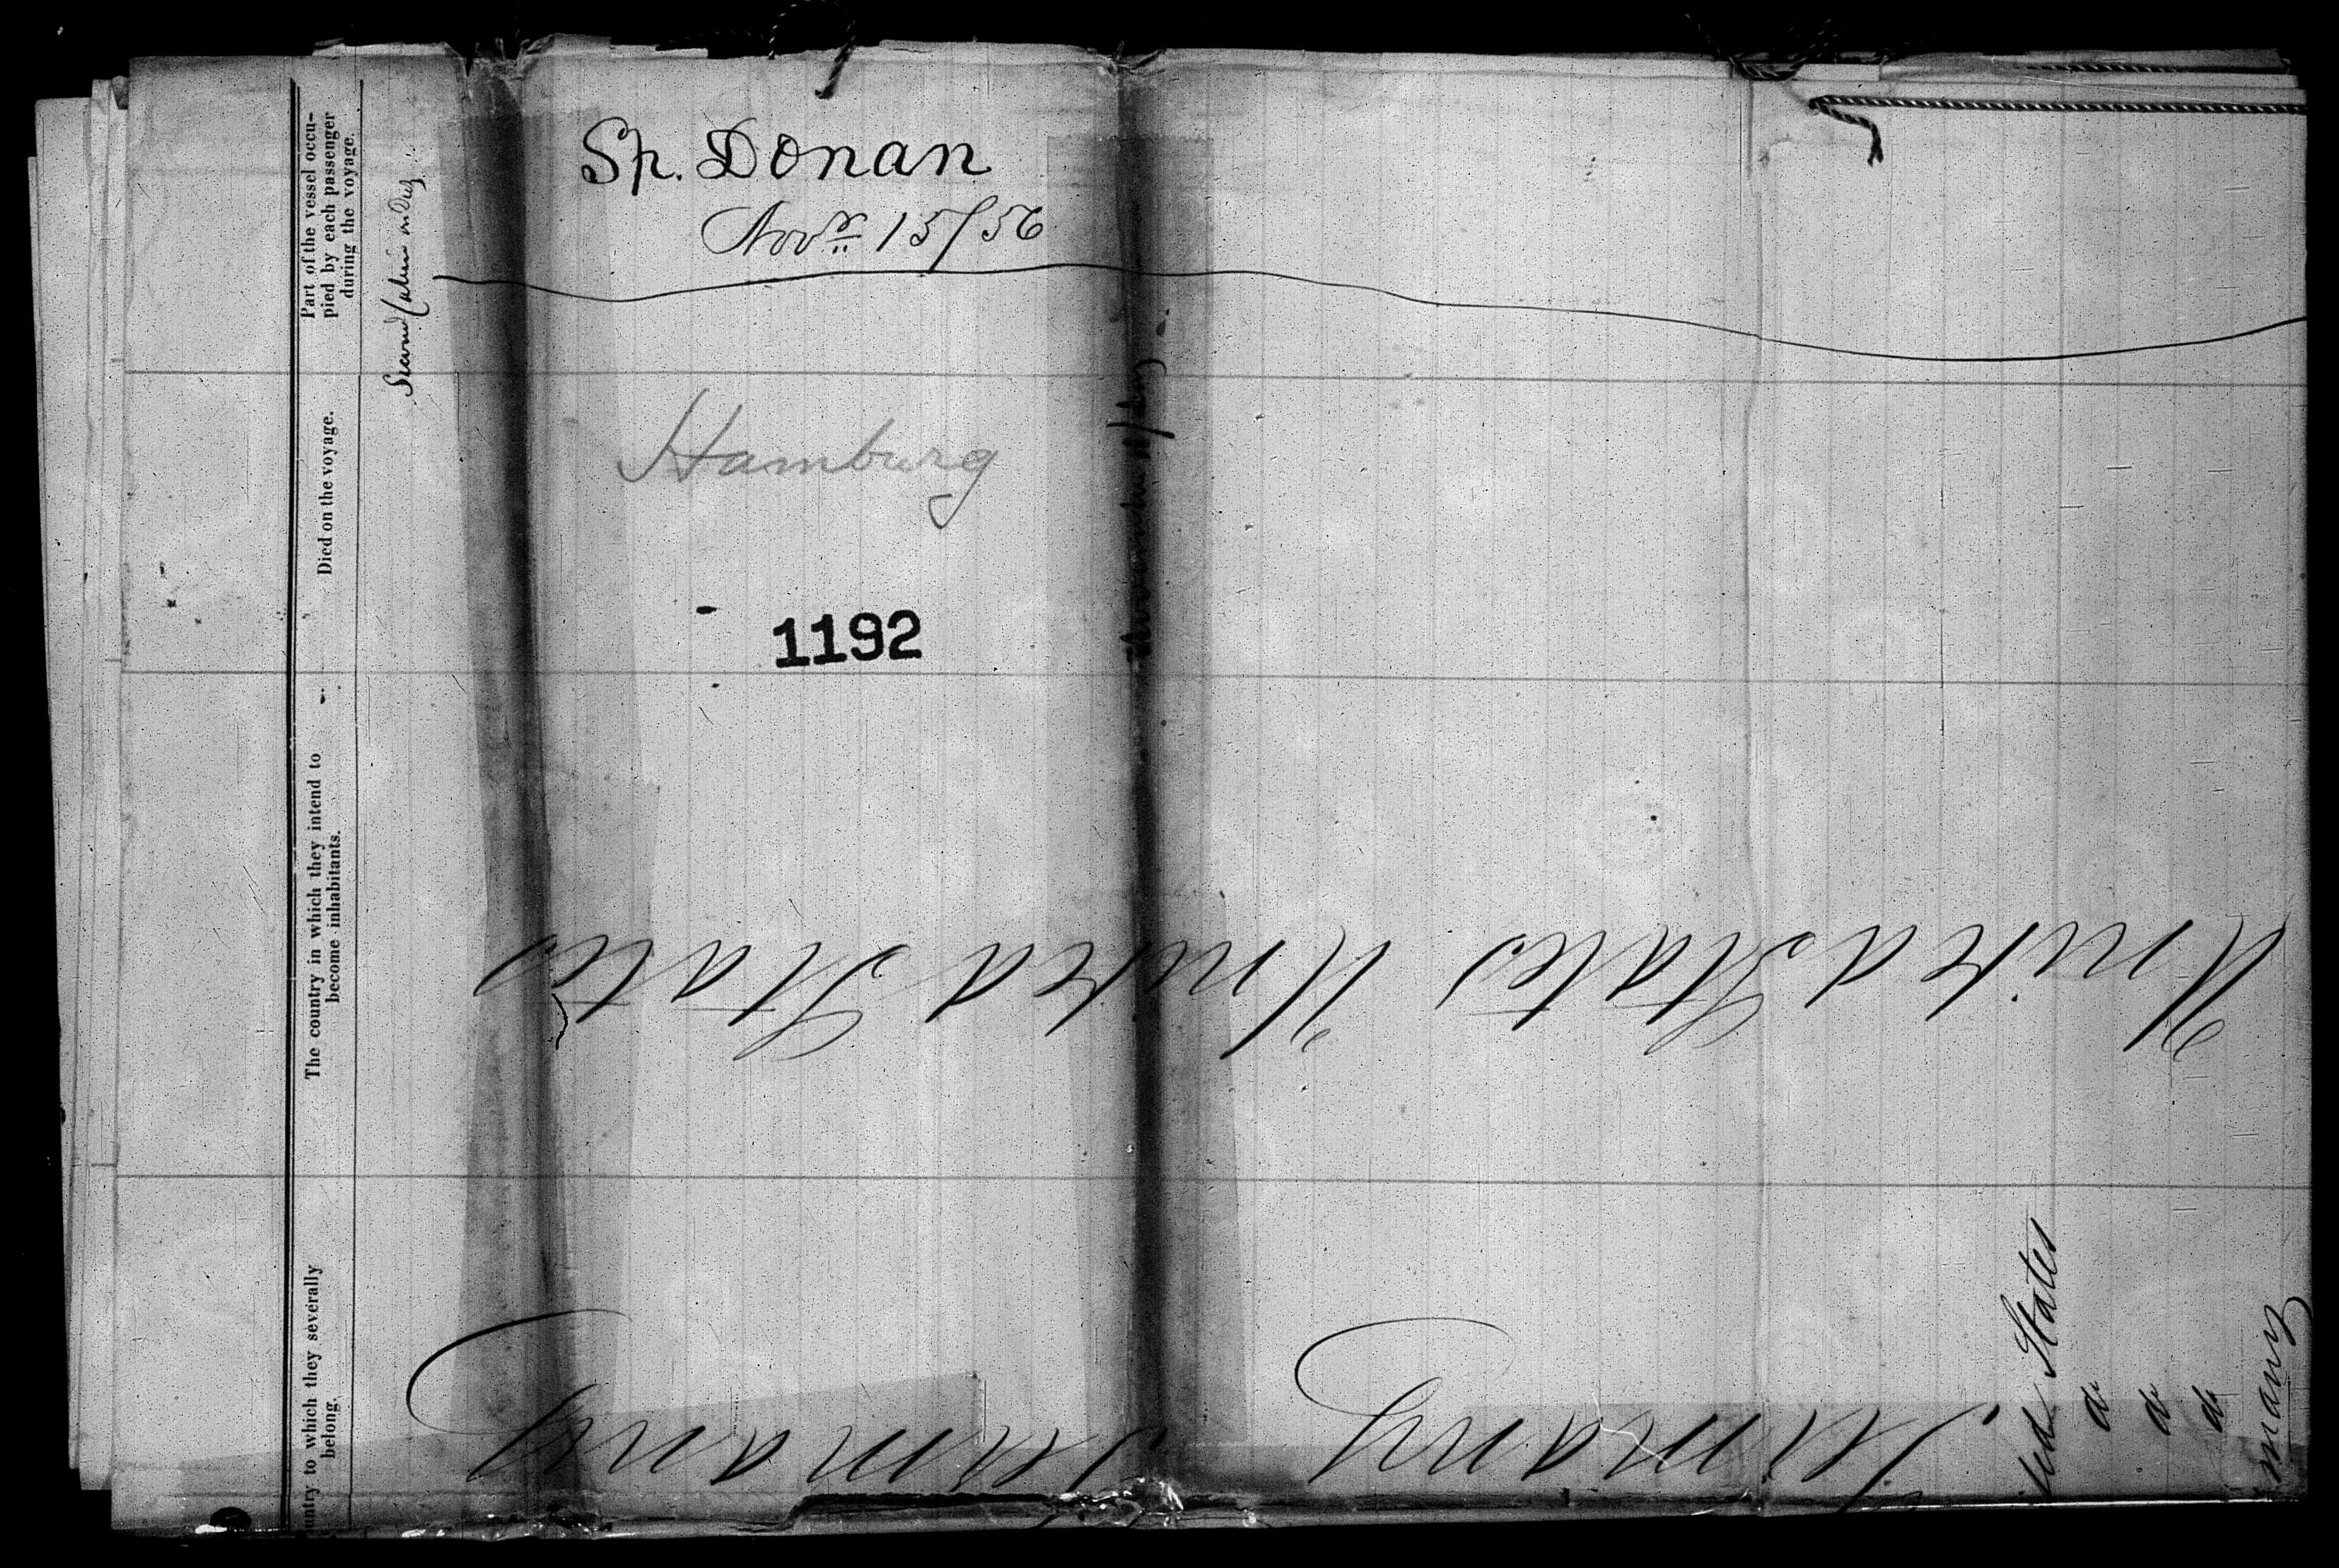 Sp. Donan
Novr 15/56
Hamburg
1192
Part of the vessel occu-
pied by each passenger
during the voyage.
Second Cabin
Died on the voyage.
The country in which they intend to
become inhabitants.
untry to which they severally
belong.
United States
United States
Germany
Germany
ted States
do
do
do
many